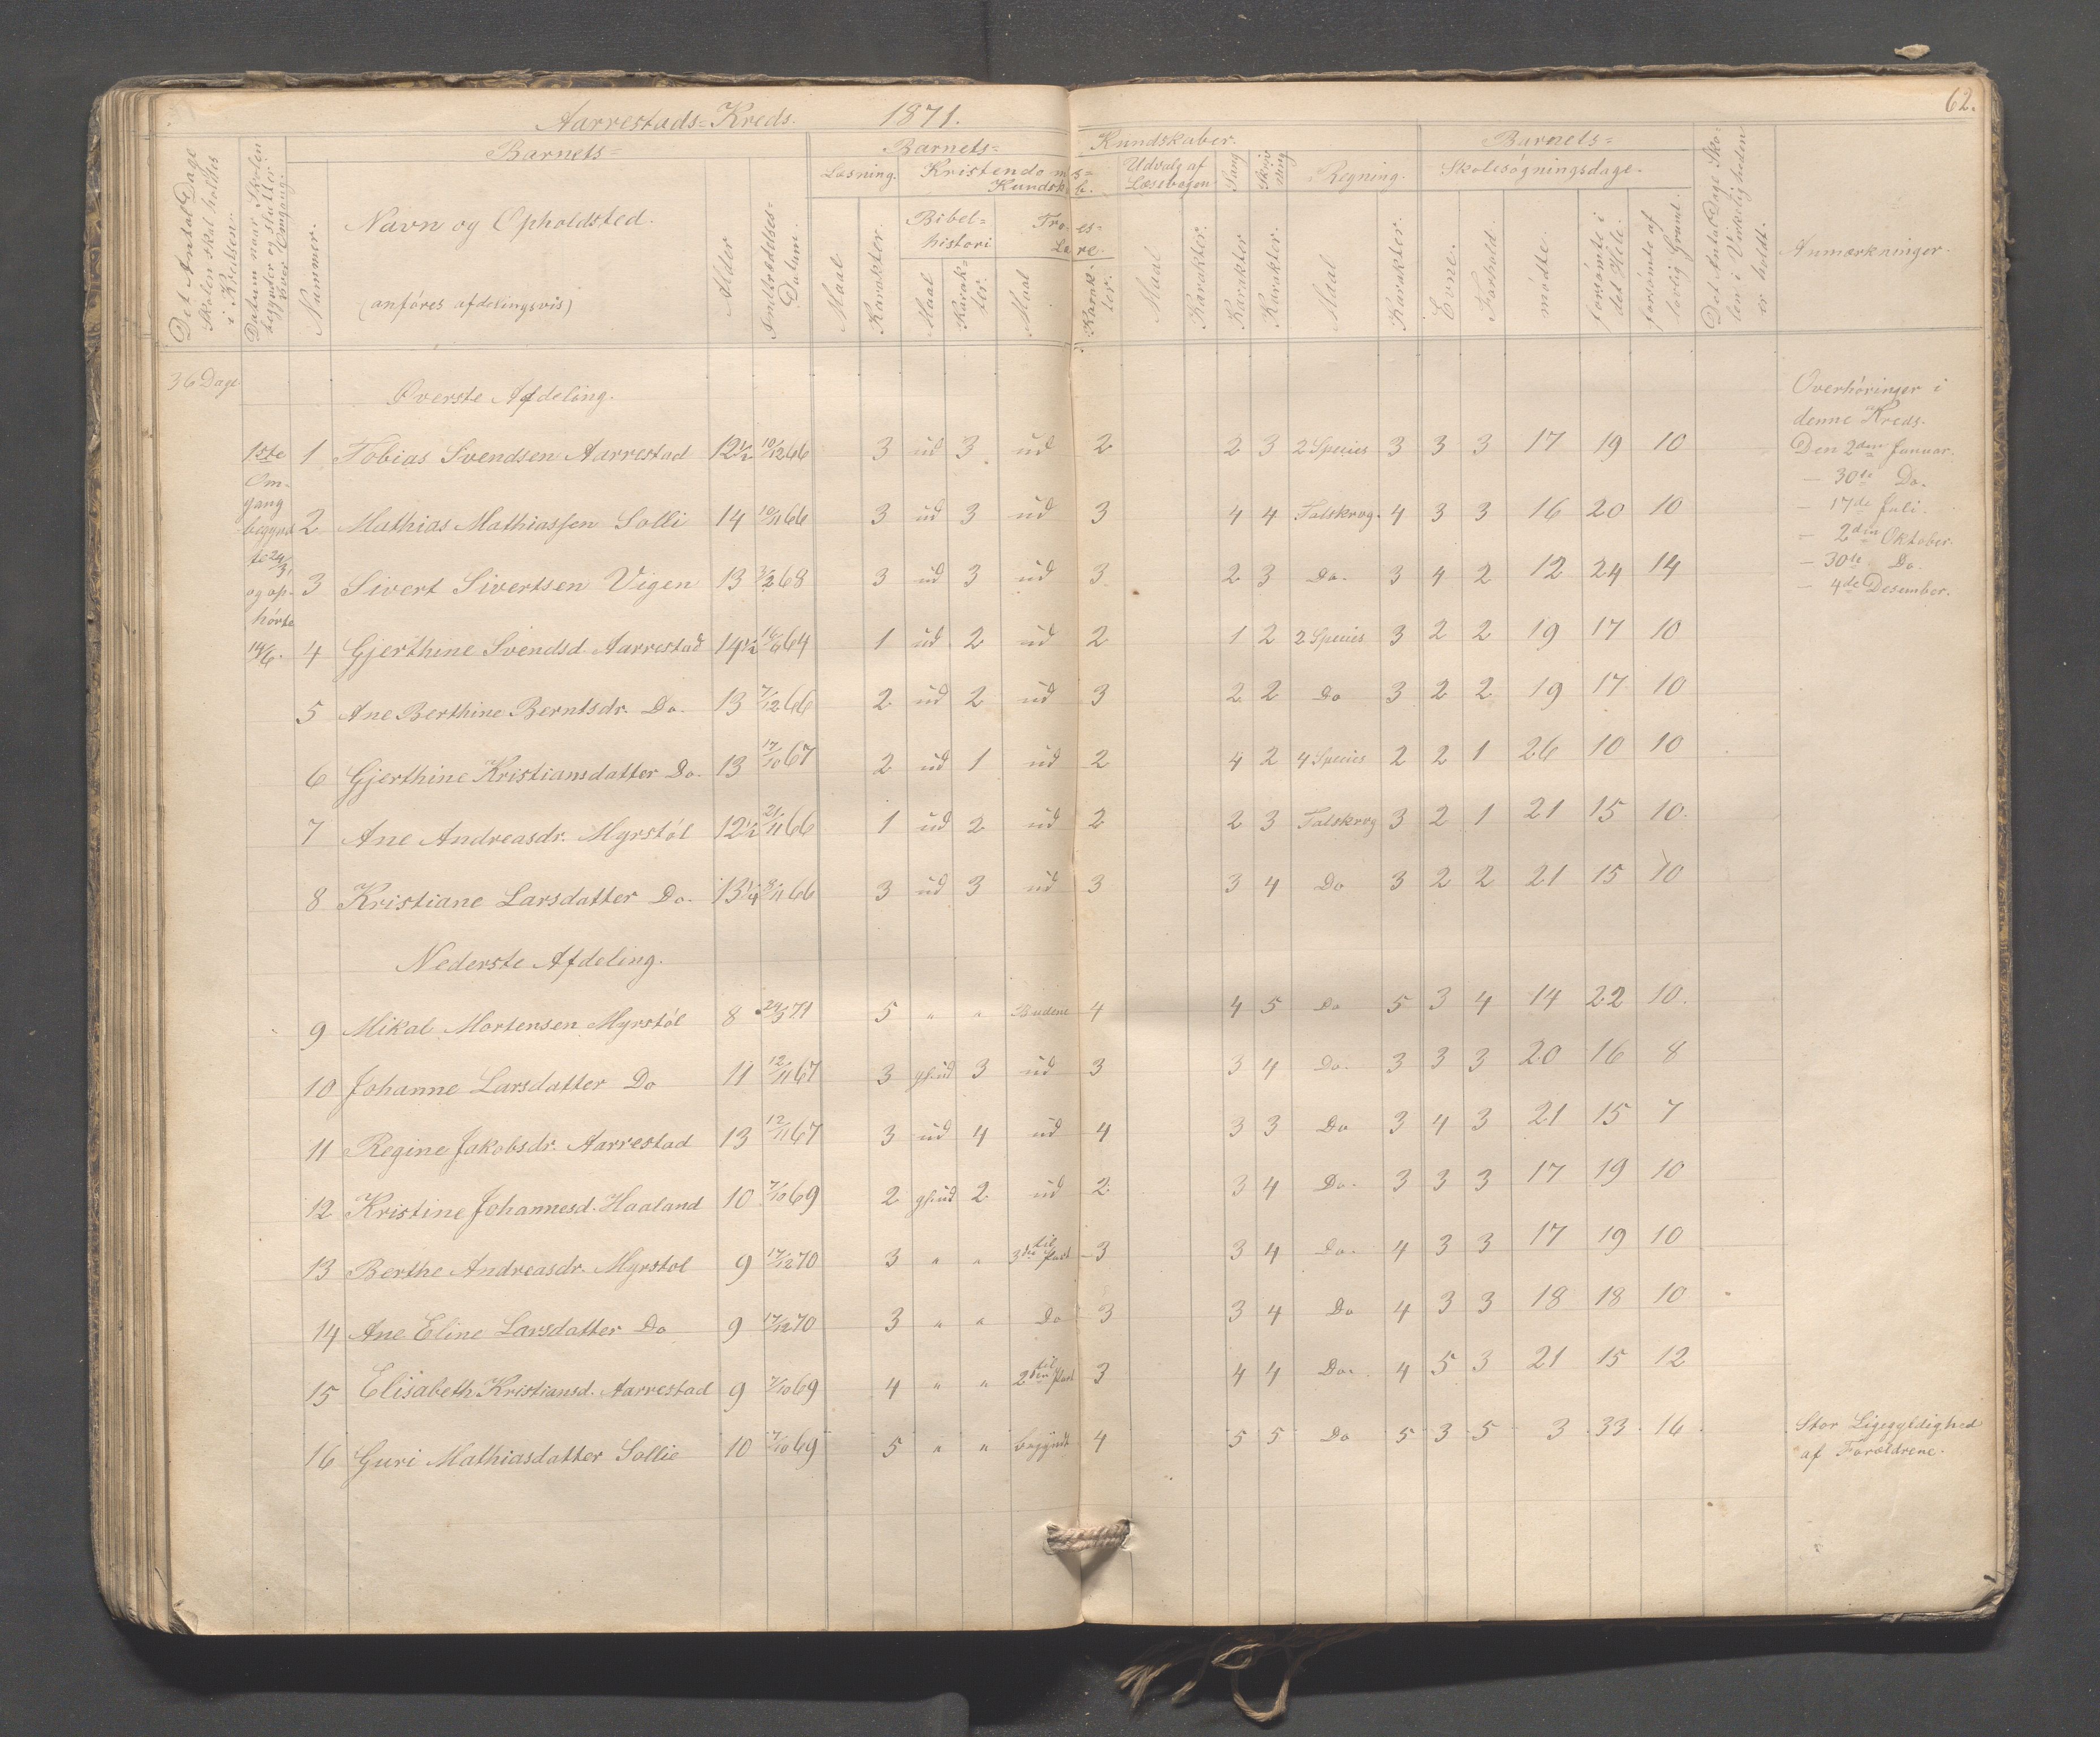 62.
Aarrestads=Kreds. 1871.
Det Antal Dage Skolen skal holdes i Kredsen.
Datum naar Skolen begynder og slutter hver Omgang.
Barnets=
Nummer.
Navn og Opholdsted.
(anföres afdelingsvis)
Alder
Indtrædelses=Datum.
Barnets= Kundskaber.
Læsning. Kristendoms= Kundsk b. Udvalg af Læsebogen Sang Skrivning Regning.
Maal Karakter.
Bibel=histori Troes=Lære.
Maal Karak=ter. Maal Karak=ter.
Maal Karakter. Karakter Karakter. Maal Karakter.
Barnets=
Skolesögningsdage.
Evne. Forhold. mødte. forsömte i det Hele. forsömte af lovlig Grund.
Det Antal Dage Skolen i Virkeligheden er holdt.
Anmærkninger.
36 Dage.
Överste Afdeling.
1ste Omgang begyndte 24/3, og ophörte 14/6.
1 Tobias Svendsen Aarrestad 12½ 10/12 66 3 üd 3 üd 2 2 3 2 Species 3 3 3 17 19 10
2 Mathias Mathiassen Solli 14 10/11 66 3 üd 3 üd 3 4 4 Talskrvg. 4 3 3 16 20 10
3 Sivert Sivertsen Vigen 13 3/2 68 3 üd 3 üd 3 2 3 Do. 3 4 2 12 24 14
4 Gjerthine Svendsd. Aarrestad 14½ 16/6 64 1 üd 2 üd 2 1 2 2 Species 3 2 2 19 17 10
5 Ane Berthine Berntsdr. Do. 13 7/12 66 2 üd 2 üd 3 2 2 Do 3 2 2 19 17 10
6 Gjerthine Kristiansdatter Do. 13 17/10 67 2 üd 1 üd 2 4 2 4 Species 2 2 1 26 10 10
7 Ane Andreasdr. Myrstöl 12½ 21/11 66 1 üd 2 üd 2 2 3 Talskrvg 3 2 1 21 15 10
8 Kristiane Larsdatter Do. 13¼ 3/11 66 3 üd 3 üd 3 3 4 Do 3 2 2 21 15 10
Nederste Afdeling.
9 Mikal Mortensen Myrstöl 8 24/3 71 5 " " Budene 4 4 5 Do 5 3 4 14 22 10.
10 Johanne Larsdatter Do 11 12/11 67 3 gl.üd 3 üd 3 3 4 Do. 3 3 3 20 16 8
11 Regine Jakobsdr. Aarrestad 13 12/11 67 3 üd 4 üd 4 3 3 Do 3 4 3 21 15 7
12 Kristine Johannesd. Haaland 10 7/10 69 2 gl.üd 2 üd 2 3 4 Do. 3 3 3 17 19 10
13 Berthe Andreasdr. Myrstöl 9 17/12 70 3 " " til 3die Part 3 3 4 Do. 4 3 3 17 19 10
14 Ane Eline Larsdatter Do 9 17/12 70 3 " " Do 3 3 4 Do 4 3 3 18 18 10
15 Elisabeth Kristiansd. Aarrestad 9 7/10 69 4 " " til 2den Part 3 4 4 Do. 4 5 3 21 15 12
16 Guri Mathiasdatter Sollie 10 7/10 69 5 " " begyndt 4 5 5 Do 5 3 5 3 33 16
Overhöringer i
denne Kreds.
Den 2den Januar.
— 30te Do.
— 17de Juli.
— 2den Oktober.
— 30te Do.
— 4de Desember.
Stor Ligegyldighed
af Forældrene.